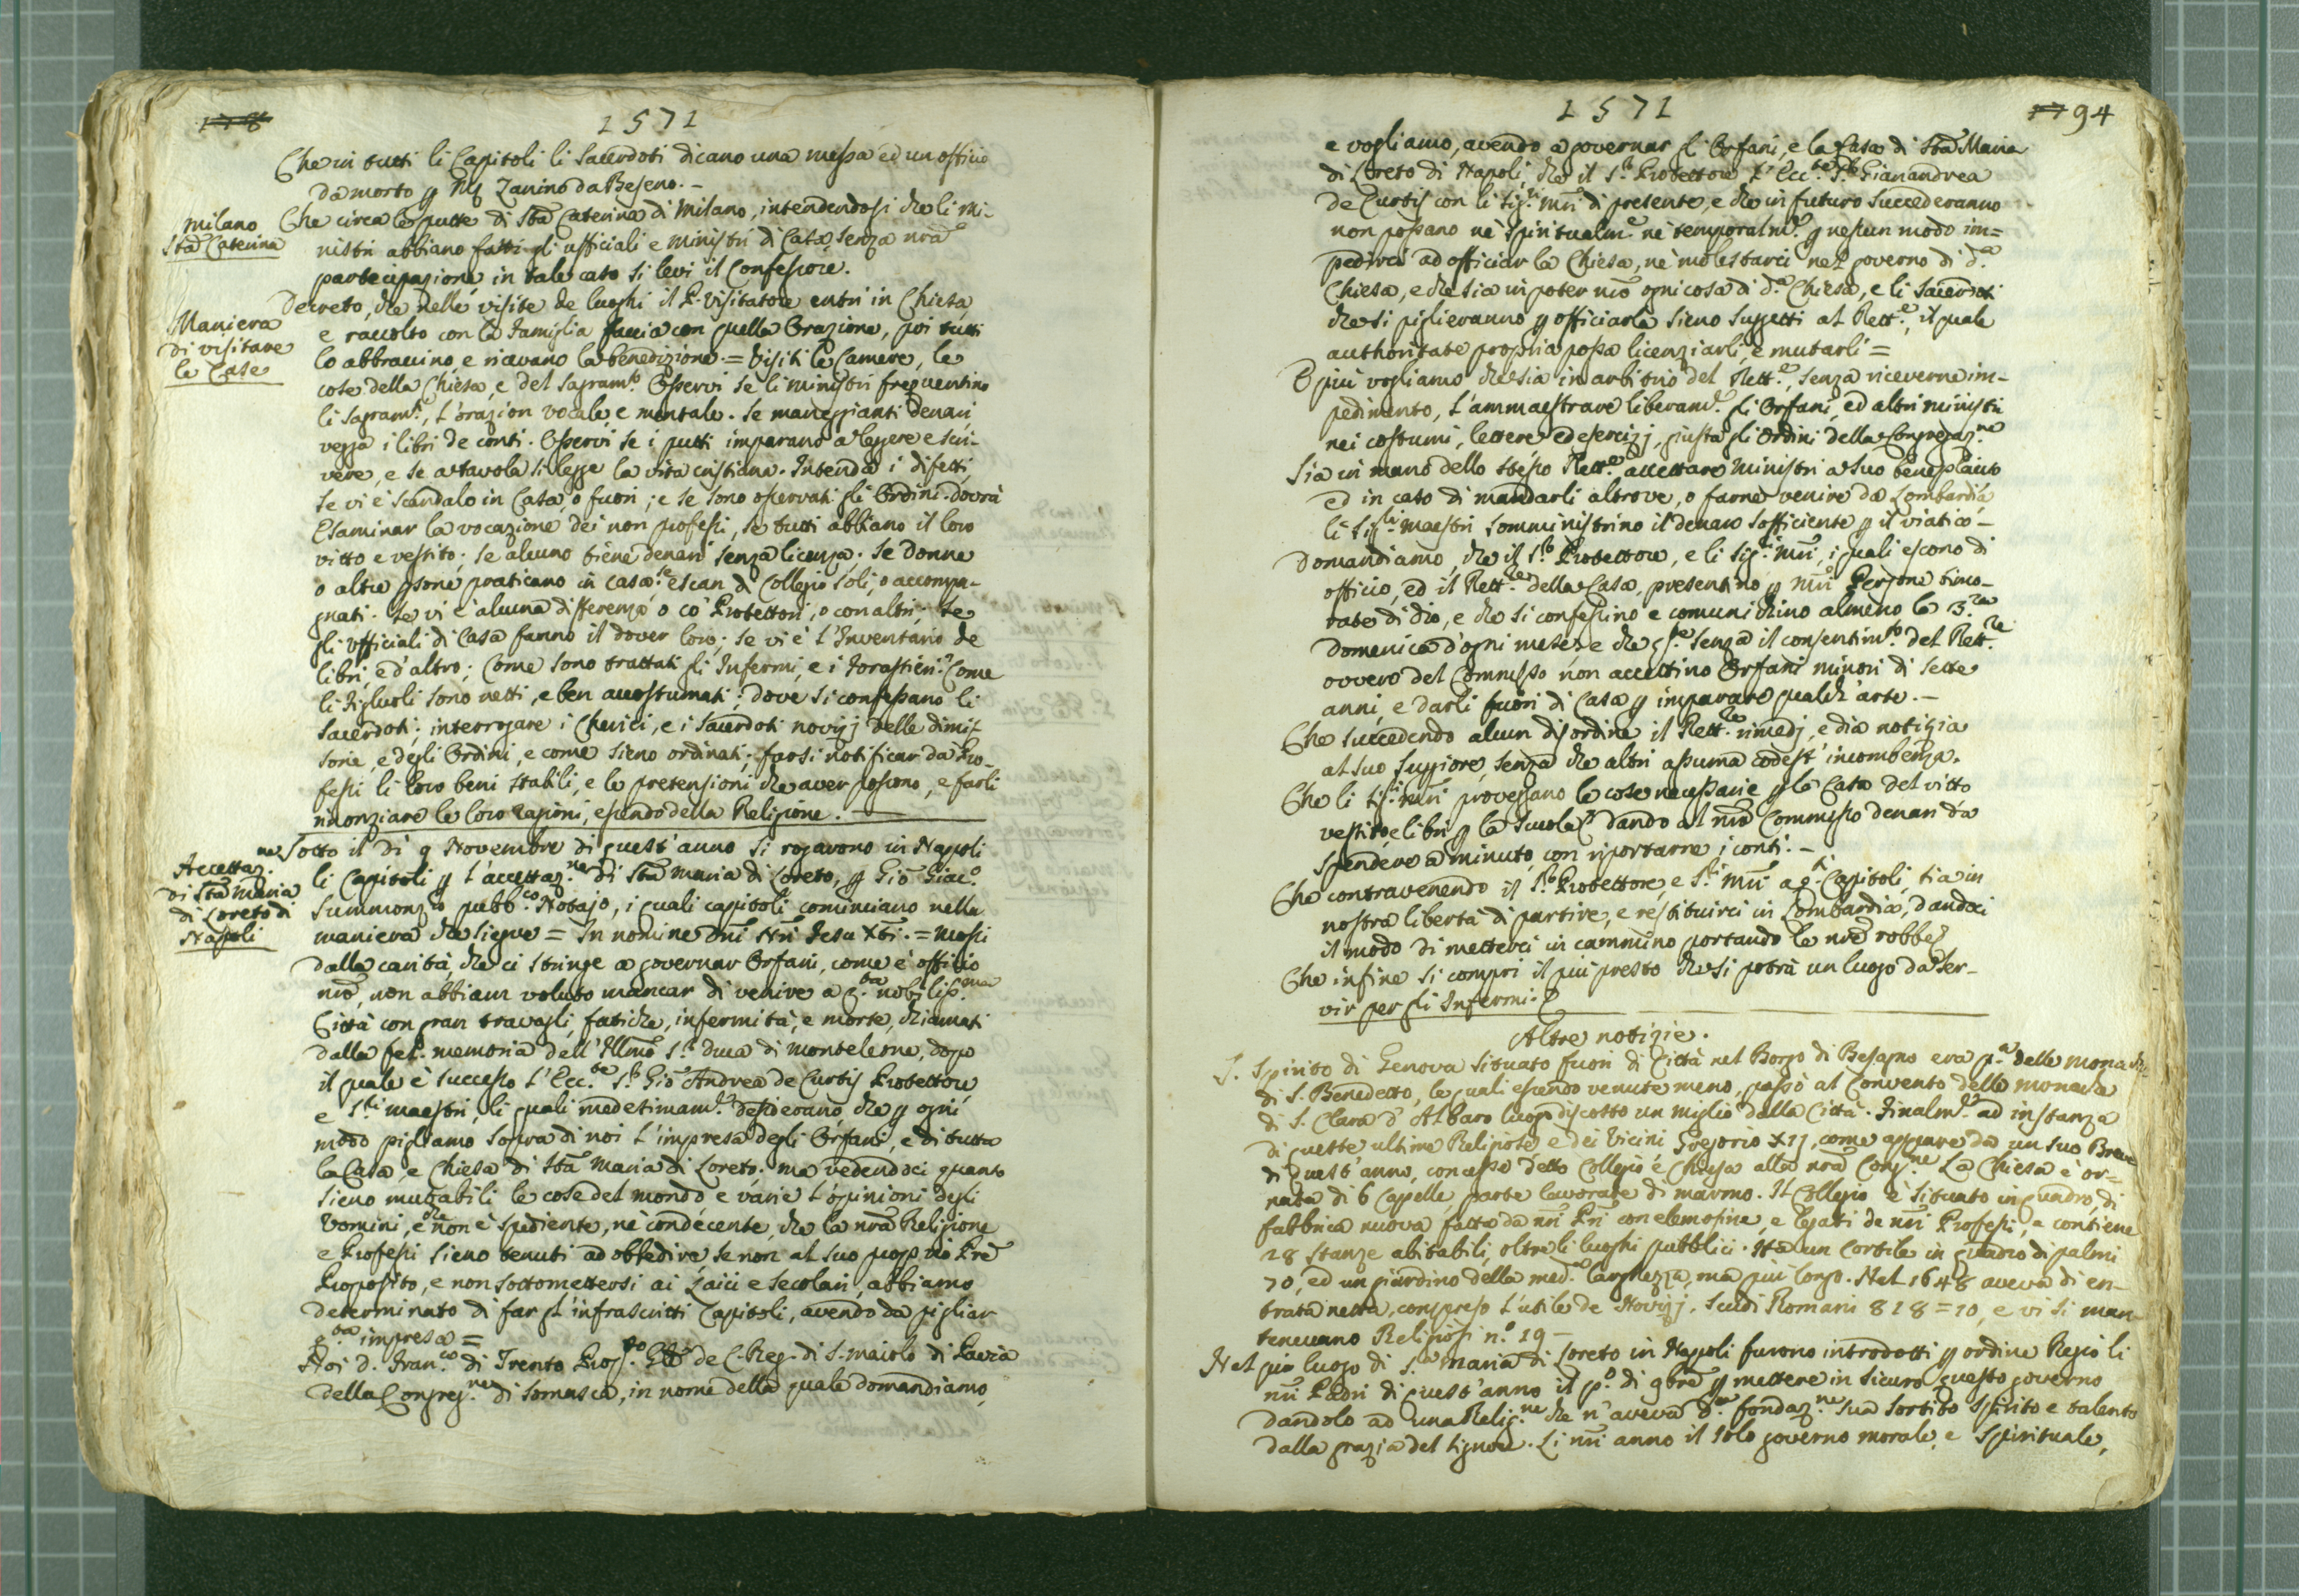 1571
Che in tutti li Capitoli li Sacerdoti dicano una messa ed un officio
da morto p M.s Zanino da Beseno. -
Milano
Sta Caterina
Che circa le putte di Sta Caterina di Milano, intendendosi che li Mi-
nistri abbiano fatti gli ufficiali e ministri di Casa, senza nra
partecipazione, in tale caso si levi il Confessore.
Maniera
di visitare
le Case
Decreto, che nelle visite de luoghi il P. Visitatore entri in Chiesa,
e raccolto con la Famiglia faccia con quella Orazione, poi tutti
lo abbraccino, e ricevano la benedizione. = Visiti le Camere, le
cose della Chiesa, e del Sagramto. Osservi se li ministri frequentino
li Sagramti, l'orazion vocale, e mentale. Se maneggianti denari
vegga i libri de conti. Osservi se i putti imparano a leggere e scri-
vere, e se a tavola si legge la vita cristiana. Intenda i difetti,
se vi è scandalo in Casa, o fuori; e se sono osservati gli Ordini. dovrà
Esaminar la vocazione dei non professi, se tutti abbiano il loro
vitto e vestito; se alcuno tiene denari senza licenza; se donne
o altre psone praticano in casa: se escan di Collegio soli, o accompa-
gnati. Se vi è alcuna differenza o co' Protettori, o con altri; se
gli Ufficiali di Casa fanno il dover loro; se vi è l'Inventario de
libri, ed altro; Come sono trattati gli Infermi, e i Forastieri: Come
li Figliuoli sono netti, e ben accostumati; dove si confessano li
Sacerdoti; interrogare i Chierici, e i Sacerdoti novizj delle dimis-
sorie, e degli Ordini, e come sieno ordinati; farsi notificar da Pro-
fessi li loro beni stabili, e le pretensioni che aver possono, e farli
rinonziare le loro ragioni, essendo della Religione.
Accettaz.ne
di Sta Maria
di Loreto di
Napoli
Sotto il dì 9 Novembre di quest'anno si rogarono in Napoli
li Capitoli p l'accettaz.ne di Sta Maria di Loreto, p Gio Giac.o
Summonzo pubb.co Notajo, i quali capitoli cominciano nella
maniera che siegue = In nomine Dni Nri Iesu Xti. = Mossi
dalla carità, che ci stringe a governar Orfani, come è officio
nro, non abbiam voluto mancar di venire a q.ta nobiliss.ma
Città con gran travagli, fatiche, infermità, e morte, chiamati
dalla fel. memoria dell'Illmo S.r Duca di Monteleone, dopo
il quale è successo l'Ecc.te S.r Gio Andrea de Curtis Protettore
e S.ri maestri, li quali medesimam.te desiderano, che p ogni
modo pigliamo sopra di noi l'impresa degli Orfani, e di tutta
la Casa, e Chiesa di Sta Maria di Loreto; ma vedendoci quanto
sieno mutabili le cose del mondo e varie l'opinioni degli
Uomini, e che non è spediente, nè condecente, che la nra Religione
e Professi sieno tenuti ad obbedire, se non al suo proprio Pre
Proposito, e non sottomettersi ai Laici e Secolari, abbiamo
determinato di far gl'infrascritti Capitoli, avendo da pigliar
q.ta impresa =
Noi D. Fran.co di Trento Prop.to G.le de C. Reg. di S. Maiolo di Pavia
della Congreg.ne di Somasca, in nome della quale domandiamo,
1571
94
e vogliamo, avendo a governar gli Orfani, e la Casa di Sta Maria
di Loreto di Napoli, che il S.r Protettore l'Ecc.te S.r Gianandrea
de Curtis con li Sig.ri Mri di presente, e che in futuro succederanno
non possano nè spiritualm.e nè temporalm.e p nessun modo im=
pedirci ad officiar la Chiesa, nè molestarci nel governo di d.a
Chiesa, e che sia in poter nro ogni cosa di d.a Chiesa, e li Sacerdoti
che si piglieranno p officiarla sieno suggetti al Rett.e, il quale
authoritate propria possa licenziarli, e mutarli =
E più vogliamo che sia in arbitrio del Rett.e, senza riceverne im-
pedimento, l'ammaestrare liberam.e gli Orfani, ed altri ministri
nei costumi, lettere ed esercizj, giusta gli Ordini della Congregaz.ne
Sia in mano dello stesso Rett.e accettare Ministri a suo beneplacito
ed in caso di mandarli altrove, o farne venire da Lombardia
li Sig.li Maestri somministrino il denaro sofficiente p il viatico -
Domandiamo, che il S.r Protettore, e li Sig.ri Mri, i quali escono di
officio, ed il Rett.re della Casa, presentino p Mri Persone timo-
rate di Dio, e che si confessino e comunichino almeno la 3.za
Domenica d'ogni mese: e che senza il consentim.to del Rett.re
ovvero del Commesso non accettino Orfani minori di sette
anni, e darli fuori di Casa p imparare qualch'arte. -
Che succedendo alcun disordine il Rett.re rimedj, e dia notizia
al suo Suppiore, senza che altri assuma codest'incombenza.
Che li Sig.ri Mri provegano le cose necessarie p la Casa del vitto
vestito, e libri p la scuola, dando al nro Commesso denari da
spendere a minuto, con riportarne i conti. -
Che contravenendo il S.r Protettore, e S.ri Mri a q.ti Capitoli, sia in
nostra libertà di partire, e restituirci in Lombardia, dandoci
il modo di metterci in cammino portando le nre robbe
Che infine si compri il più presto che si potrà un luogo da ser-
vir per gli Infermi.
Altre notizie.
S. Spirito di Genova situato fuori di Città nel Borgo di Besagno era p.a delle Monache
di S. Benedetto, le quali essendo venute meno, passò al Convento delle monache
di S. Clara d'Albaro luogo discosto un miglio dalla Città. Finalm.te ad instanza
di queste ultime Religiose, e dei Vicini Gregorio XIIJ, come appare da un suo Breve
di quest'anno, concesse detto Collegio e Chiesa alla nra Cong.ne La Chiesa è or-
nata di 6 Capelle, parte lavorate di marmo. Il Collegio è situato in quadro, di
fabbrica nuova fatta da nri Pri con elemosine, e legati de nri Professi, e contiene
28 stanze abitabili, oltre li luoghi pubblici. Ha un Cortile in quadro di palmi
70, ed un giardino della med.a larghezza, ma più longo. Nel 1648 aveva di en-
trata netta, compreso l'utile de Novizj, Scudi Romani 818=10, e vi si man-
tenevano Religiosi n.o 19 -
Nel pio luogo di S.a Maria di Loreto in Napoli furono introdotti p ordine Regio li
nri Padri di quest'anno il p.o di 9bre p mettere in sicuro questo governo
dandolo ad una Relig.ne che n'aveva d.a fondaz.ne sua sortito spirito e talento
dalla grazia del Signore. Li nri anno il solo governo morale, e spirituale,